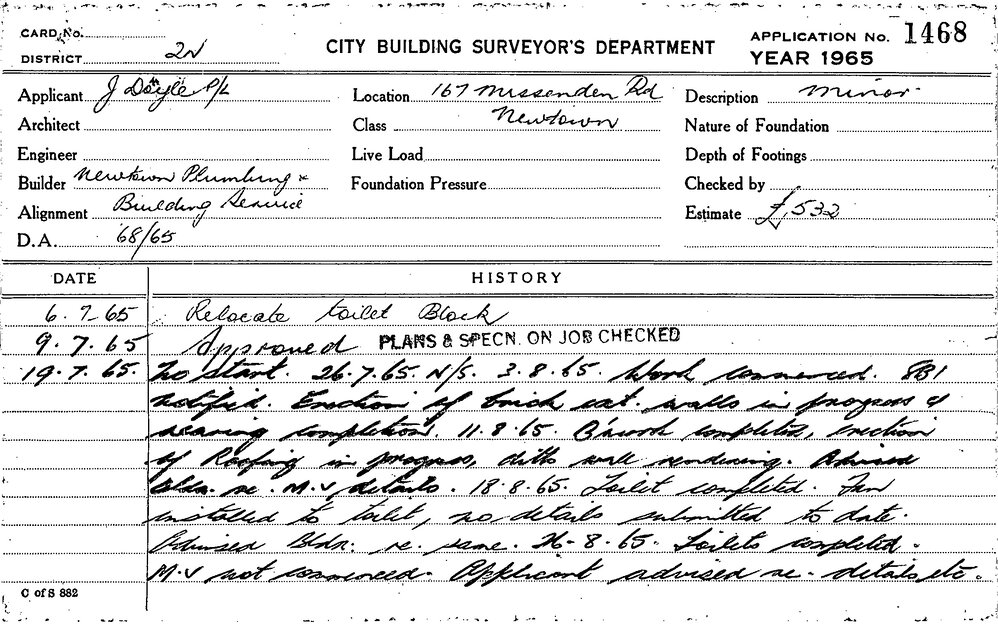 CARD No.
DISTRICT 2N
CITY BUILDING SURVEYOR'S DEPARTMENT
APPLICATION No. 1468
YEAR 1965
Applicant J Doyle P/L
Location 167 Missenden Rd
Newtown
Description Minor
Architect
Class
Nature of Foundation
Engineer
Live Load
Depth of Footings
Builder Newtown Plumbing &
Building Service
Foundation Pressure
Checked by
Alignment
Estimate £532
D.A. 68/65
DATE HISTORY
6.7.65 Relocate toilet Block
9.7.65 Approved PLANS & SPECN. ON JOB CHECKED
19.7.65. No start. 26.7.65. N/S. 3.8.65. Work commenced. SBI
notified. Erection of brick ext. walls in progress &
nearing completion. 11.8.65. B'work completed, erection
of Roofing in progress, ditto wall rendering. Advised
Bldr. re. M.V details. 18.8.65. Toilet completed. Fan
installed to toilet, no details submitted to date.
Advised Bldr. re. same. 26-8.65. Toilets completed.
M.V not commenced. Applicant advised re. details etc.
C of S 882